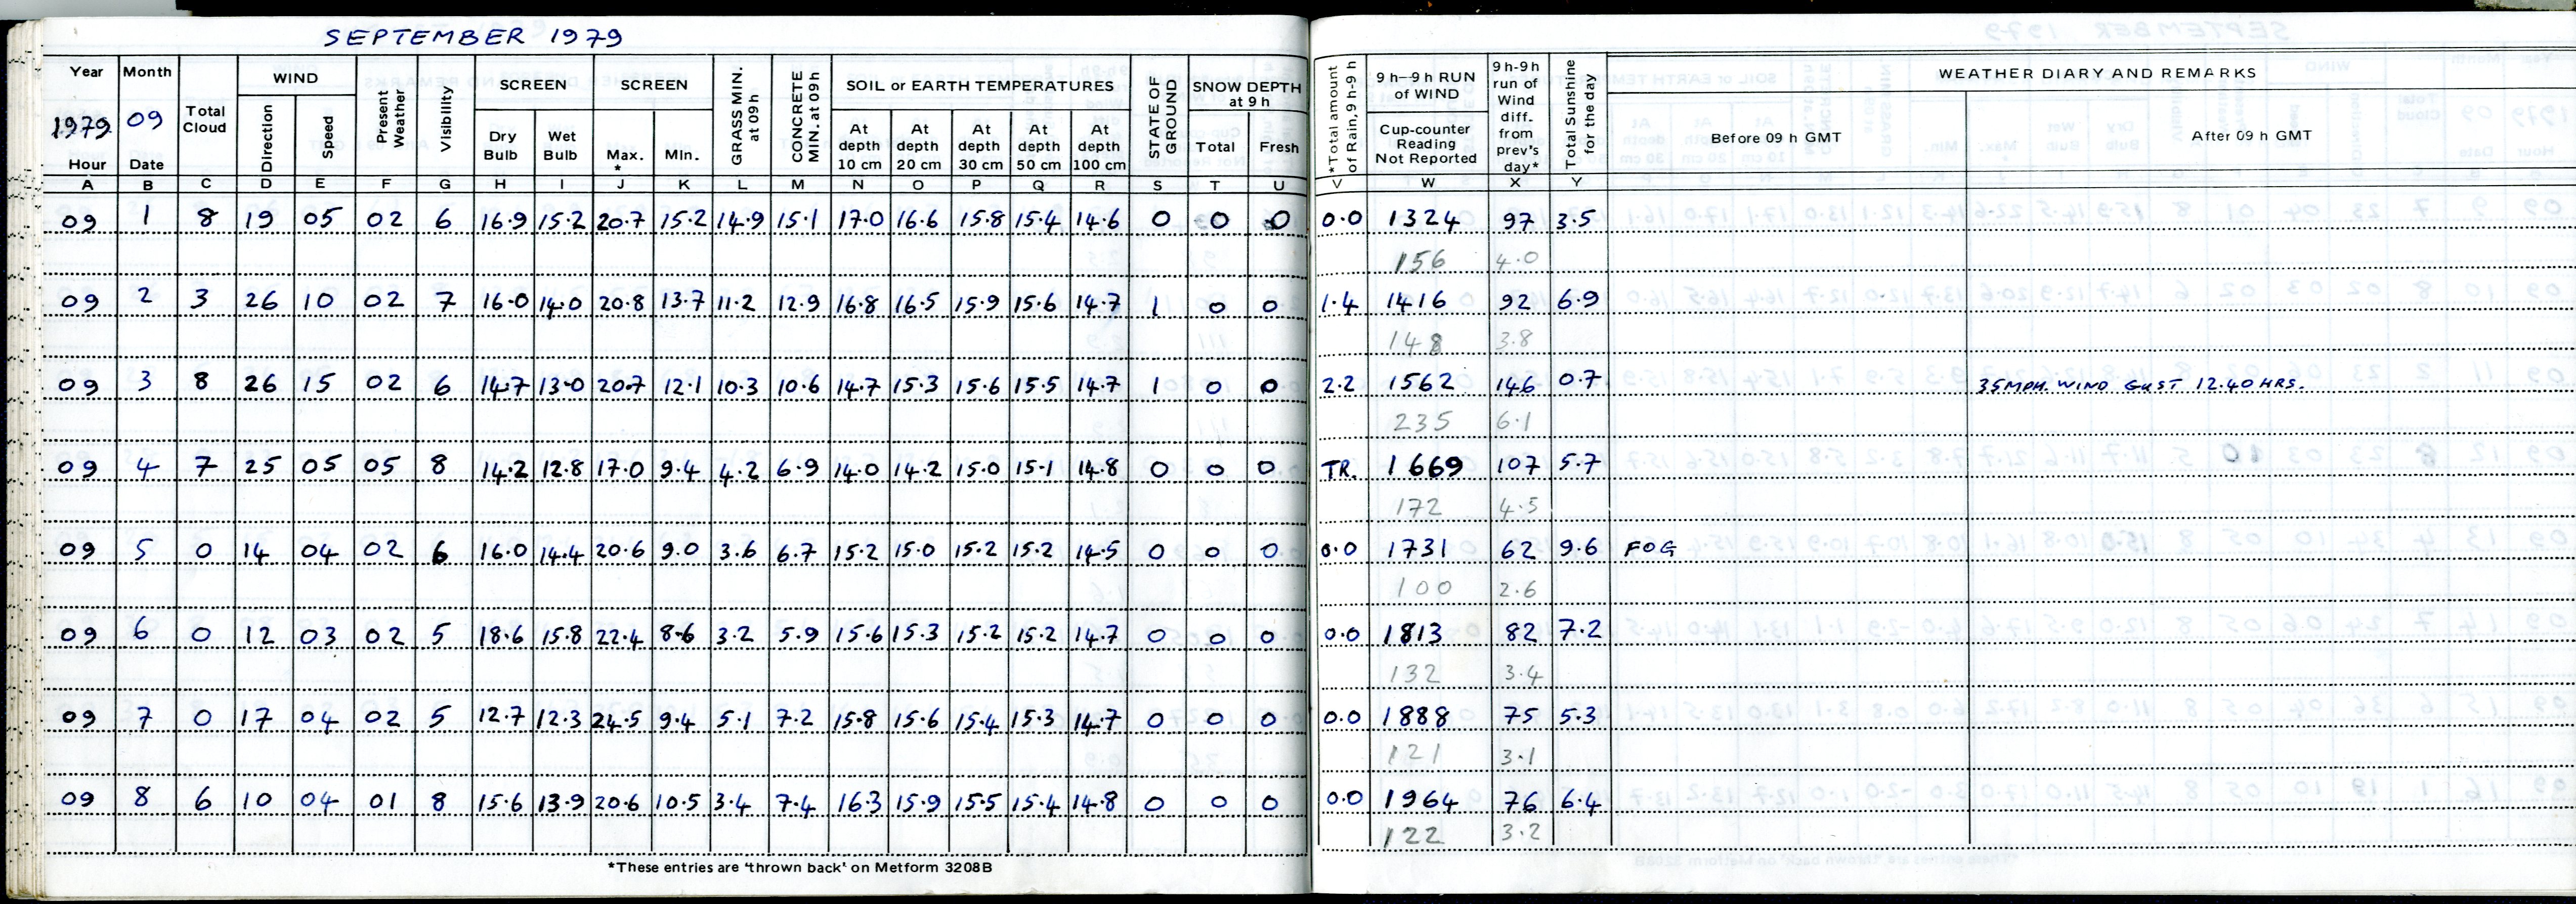 SEPTEMBER 1979
Year Month Total Cloud WIND Present Weather Visibility SCREEN SCREEN GRASS MIN. at 09 h CONCRETE MIN. at 09 h SOIL or EARTH TEMPERATURES STATE OF GROUND SNOW DEPTH at 9 h *Total amount of Rain, 9 h-9 h 9 h–9 h RUN of WIND 9 h-9h run of Wind diff. from prev's day* Total Sunshine for the day WEATHER DIARY AND REMARKS
1979 09 Direction Speed Dry Bulb Wet Bulb Max. * Min. At depth 10 cm At depth 20 cm At depth 30 cm At depth 50 cm At depth 100 cm Total Fresh Cup-counter Reading Not Reported Before 09 h GMT After 09 h GMT
Hour Date
A B C D E F G H I J K L M N O P Q R S T U V W X Y
09 1 8 19 05 02 6 16.9 15.2 20.7 15.2 14.9 15.1 17.0 16.6 15.8 15.4 14.6 0 0 0 0.0 1324 97 3.5
156 4.0
09 2 3 26 10 02 7 16.0 14.0 20.8 13.7 11.2 12.9 16.8 16.5 15.9 15.6 14.7 1 0 0 1.4 1416 92 6.9
148 3.8
09 3 8 26 15 02 6 14.7 13.0 20.7 12.1 10.3 10.6 14.7 15.3 15.6 15.5 14.7 1 0 0 2.2 1562 146 0.7 35 MPH. WIND GUST 12.40 HRS.
235 6.1
09 4 7 25 05 05 8 14.2 12.8 17.0 9.4 4.2 6.9 14.0 14.2 15.0 15.1 14.8 0 0 0 TR. 1669 107 5.7
172 4.5
09 5 0 14 04 02 6 16.0 14.4 20.6 9.0 3.6 6.7 15.2 15.0 15.2 15.2 14.5 0 0 0 0.0 1731 62 9.6 FOG
100 2.6
09 6 0 12 03 02 5 18.6 15.8 22.4 8.6 3.2 5.9 15.6 15.3 15.2 15.2 14.7 0 0 0 0.0 1813 82 7.2
132 3.4
09 7 0 17 04 02 5 12.7 12.3 24.5 9.4 5.1 7.2 15.8 15.6 15.4 15.3 14.7 0 0 0 0.0 1888 75 5.3
121 3.1
09 8 6 10 04 01 8 15.6 13.9 20.6 10.5 3.4 7.4 16.3 15.9 15.5 15.4 14.8 0 0 0 0.0 1964 76 6.4
122 3.2
*These entries are 'thrown back' on Metform 3208B